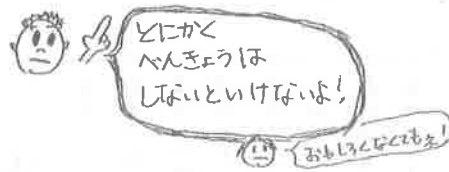 とにかく
べんきょうは
しないといけないよ!
おもしろくなくてもネ!